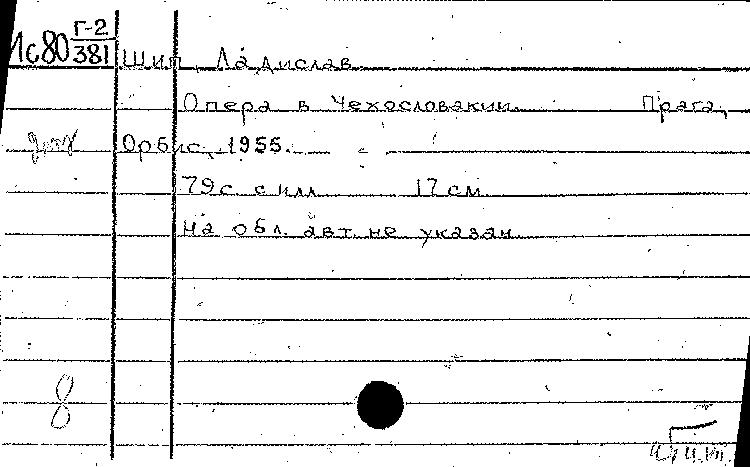 Г-2
Ис80 381
Шип, Ладислав.
Опера в Чехословакии. Прага,
Орбис, 1955.
79с. с илл. 17 см.
На обл. авт. не указан.
8